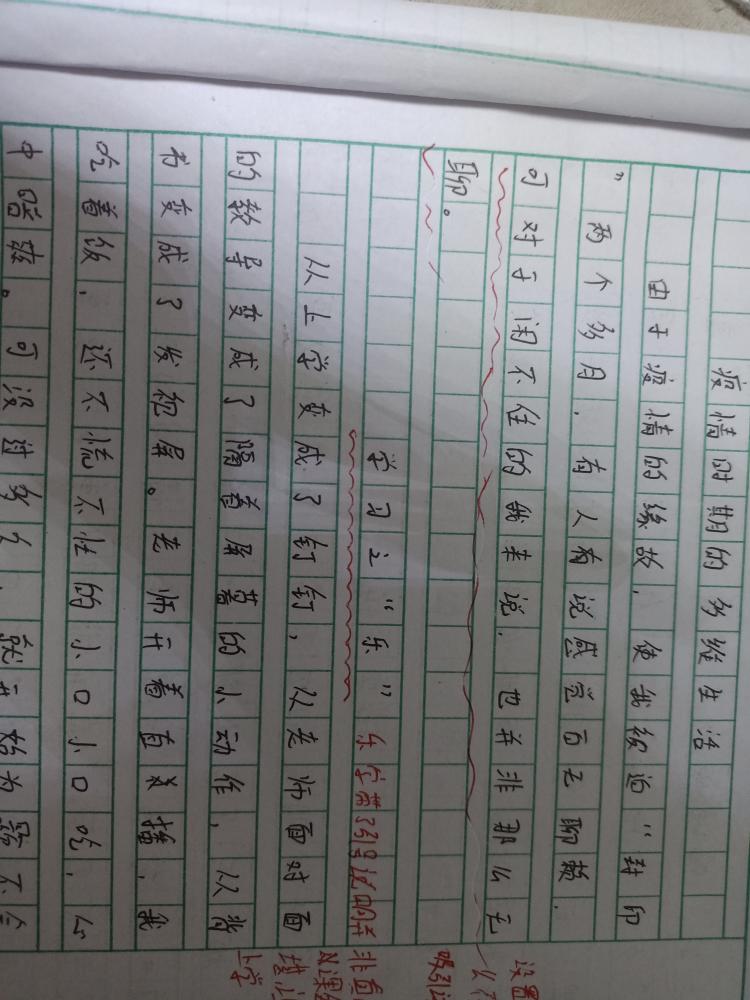 疫情时期的多维生活
由于疫情的缘故,使我被迫“封印
”两个多月.有人有说感觉百无聊赖.
可对于闲不住的我来说.也并非那么无
聊。
学习之“乐”
乐字带了引号说明并
非真
以上学变成了钉钉,以老师面对面
的教导变成了隔着屏幕的小动作,以背
书变成了发犯屏。老师开着直播.我
吃着饭.还不慌不忙的小口小口吃.心
中暗爽。可没过多久.就开始为
设置
吸引
网课
上学